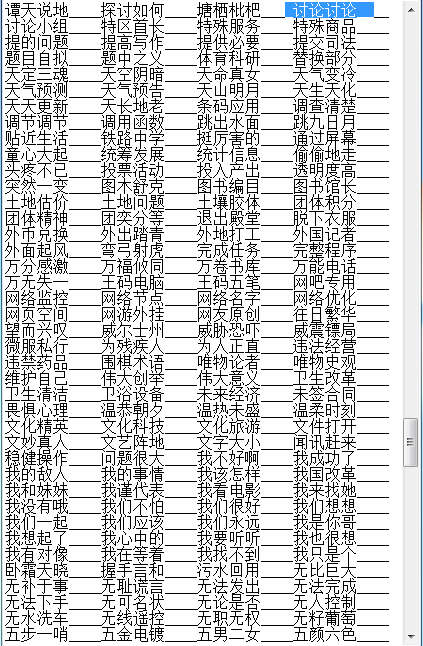 谭天说地 探讨如何 塘栖枇杷 讨论讨论
讨论小组 特区首长 特殊服务 特殊商品
提的问题 提高写作 提供必要 提交司法
题目自拟 题中之义 体育科研 替换部分
天定三魂 天空阴暗 天命真女 天气变冷
天气预测 天气预告 天山明月
天天更新 天长地老 条码应用
调节调节 调用函数 跳出水面
贴近生活 铁路中学 挺厉害的 通过屏幕
童心大起 统筹发展 统计信息 偷偷地走
头疼不已 投票活动 投入产出 透明度高
突然一变 图木舒克 图书编目 图书馆长
土地估价 土地问题 土壤胶体 团体积分
团体精神 土地分等 退出殿堂 脱下衣服
外币兑换 外出踏青 外地打工 外国记者
外面起风 弯弓射虎 完成任务 完整程序
万分感激 万福攸同 万卷书库 万能电话
万无一失 王码电脑 王码五笔 网吧专用
网络监控 网络节点 网络名字 网络优化
网页空间 网游外挂 网友原创 往日繁华
望而兴叹 威胁恐吓 威震镖局
微服私行 为人正直 违法经营
违禁药品 围棋术语 唯物论者 唯物史观
维护自己 伟大创举 伟大意义 卫生改革
卫生清洁 卫浴设备 未来经济 未签合同
畏惧心理 温恭朝夕 温柔时刻
文化精英 文化科技 文化旅游 文件打开
文妙真人 文艺阵地 文字大小 闻讯赶来
稳健操作 问题很大 我不好啊 我成功了
我的敌人 我的事情 我该怎样 我国改革
我和妹妹 我谨代表 我看电影 我来找她
我没有哦 我们不怕 我们很好 我们想想
我们一起 我们应该 我们永远 我是你哥
我想起了 我心中的 我要听听 我也很想
我有对像 我在等着 我找不到 我只是个
卧霜天晓 握手言和 污水回用 无比巨大
无补于事 无耻谎言 无法发出 无法完成
无法下手 无可名状 无论是否 无人控制
无水洗车 无线遥控 无职无权 无籽葡萄
五步一哨 五金电镀 五男二女 五颜六色